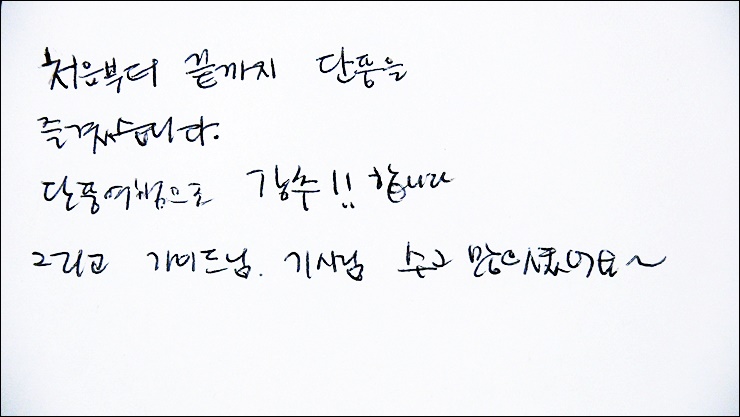 처음부터 끝까지 단풍을
즐겼습니다.
단풍여행으로 강추!! 합니다
그리고 가이드님. 기사님 수고 많이셨어요~